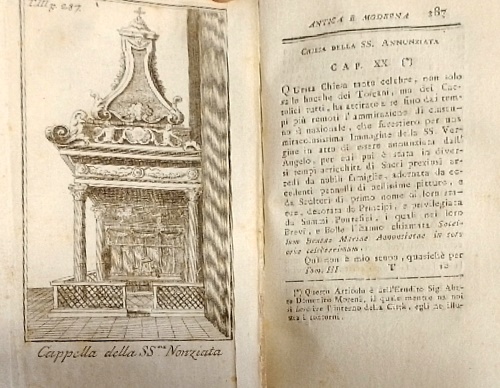 T. III p. 287.
Cappella della SS.ma Nonziata
ANTICA E MODERNA 287
CHIESA DELLA SS. ANNUNZIATA
CAP. XX (*)
QUesta Chiesa tanto celebre, non solo
le bocche dei Toscani, ma dei Cat-
tolici tutti, ha attirato a se fino dai tem-
pi più remoti l'ammirazione di ciascu-
no sì nazionale, che forestiero per una
miracolosissima Immagine della SS. Ver-
gine in atto di essere annunziata dall'
Angelo, per cui poi è stata in diver-
si tempi arricchita di Sacri preziosi ar-
redi da nobili famiglie, adornata da ec-
cedenti pennelli di bellissime pitture, e
da Scultori di primo nome al loro
decorata da Principi, e privilegiata
da Sommi Pontefici, i quali nei loro
Brevi, e Bolle l'hanno chiamata Sacel-
lum Beatae Mariae Annuntiatae in toto
orbe celeberrimum.
Qui non è mio scopo, qualche per
Tom. III T
(*) Questo Articolo è dell'Erudito Sig. Aba-
te Domenico Moreni, il quale mentre noi
l'interno della Città, egli ne illu-
stra i contorni.